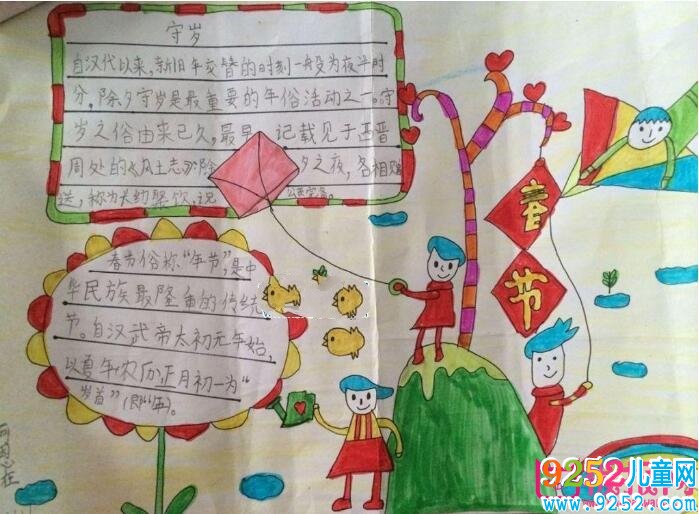 守岁
自汉代以来,新旧年交替的时刻一般为夜半时
分,除夕守岁是最重要的年俗活动之一。守
岁之俗由来已久,最早 记载见于西晋
周处的《风土志》:除 夕之夜,各相
送,称为
春节俗称"年节",是中
华民族最隆重的传统
节。自汉武帝太初元年始,
以夏年(农历)正月初一为"
岁首"(即"年")。
春
节
9252儿童网
www.9252.com